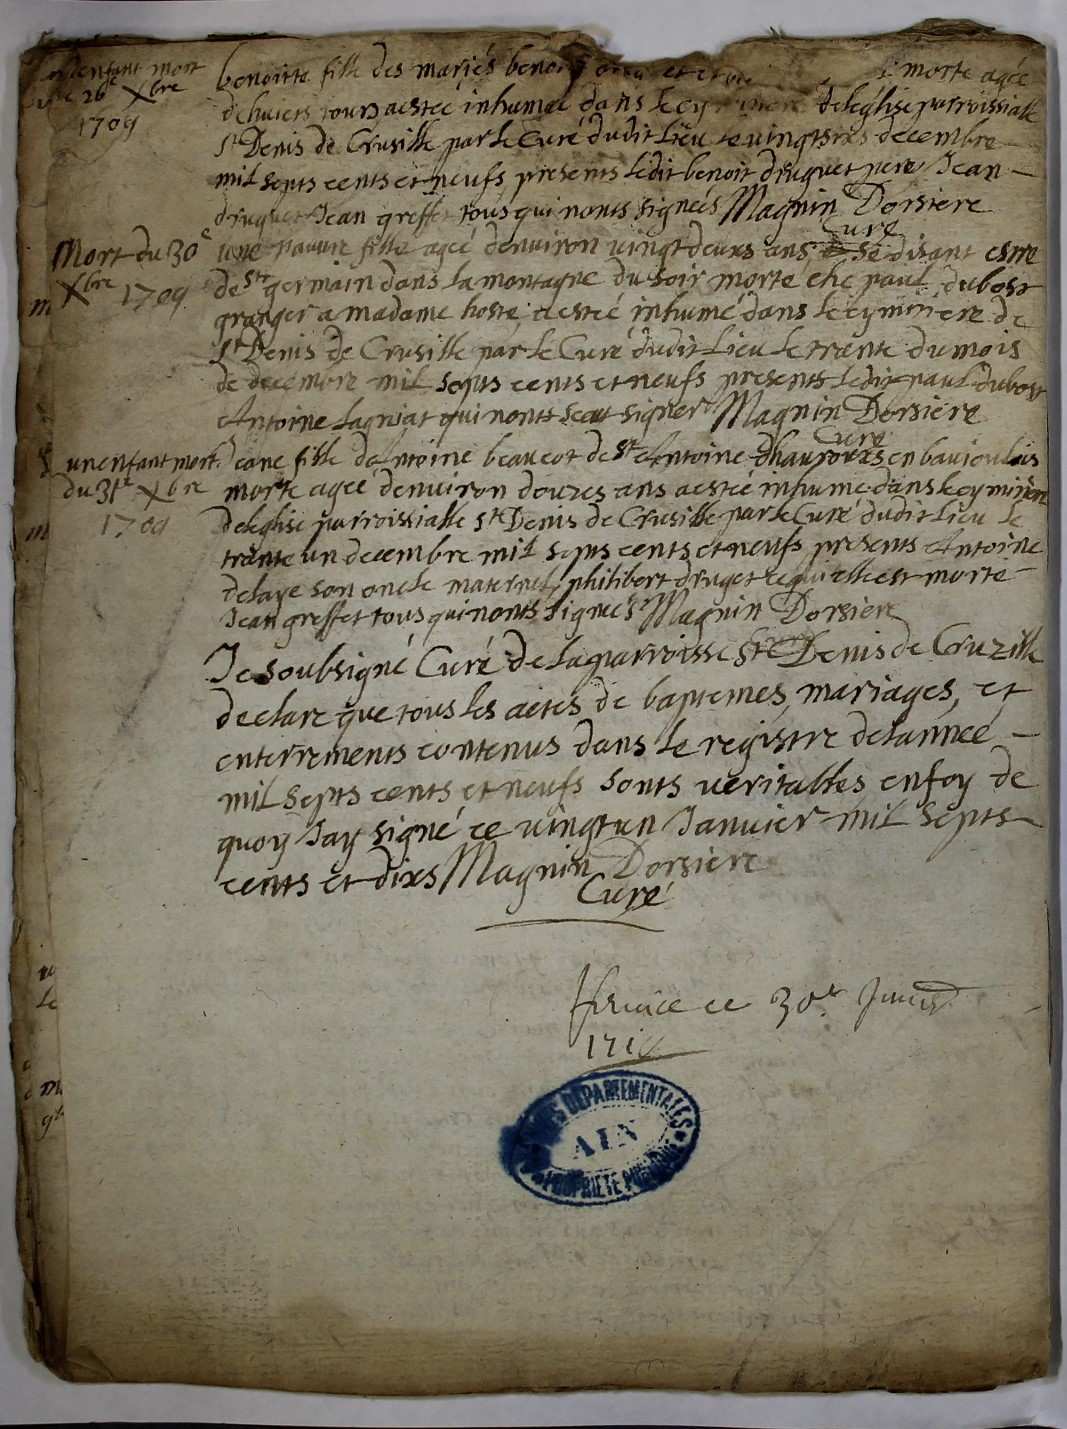 enfant mort
26e Xbre
1709
benoitte fille des mariés benoit et morte agée
dehuiets jours aestée inhumée dans le cymitiere deleglise parroissialle
St Denis de Crusille par le Curé dudit Lieu le vingtsixs decembre
mil septs cents et neufs presents ledit benoit druguet pere Jean
druguet Jean greffet tous qui nonts signeés Magnin Dorsiere
Curé
Mort du 30e
Xbre 1709
une pauvre fille ageé denviron vingt deuxs ans se disant estre
de St germain dans la montagne du soir morte ché paul dubost
granger a madame hoste aestée inhumé dans le cymitiere de
St Denis de Crusille par le Curé dudit Lieu le trente du mois
de decembre mil septs cents et neufs presents ledit paul dubost
Antoine Lagniat qui nonts sceut signer Magnin Dorsiere
Curé
un enfant mort
du 31e Xbre
1709
Jeane fille dantoine beaucot de St Antoine en baujoulois
morte ageé denviron douzes ans aestée inhumé dans le cymitiere
deleglise parroissialle St Denis de Crusille par le Curé dudit Lieu le
trente un decembre mil septs cents et neufs presents Antoine
delaye son oncle maternel, philibert druget ché qui elle est morte
Jean greffet tous qui nonts signeés Magnin Dorsiere
Curé
Je soubsigné Curé de La parroisse St Denis de Cruzille
declare que tous les actes de baptemes, mariages, et
enterrements contenus dans le registre delanneé
mil septs cents et neufs sonts veritables en foy de
quoy Jay signé ce vingt un Janvier mil septs
cents et dixs Magnin Dorsiere
Curé
ce 30e
ARCHIVES DEPARTEMENTALES
AIN
PROPRIETE PUBLIQUE